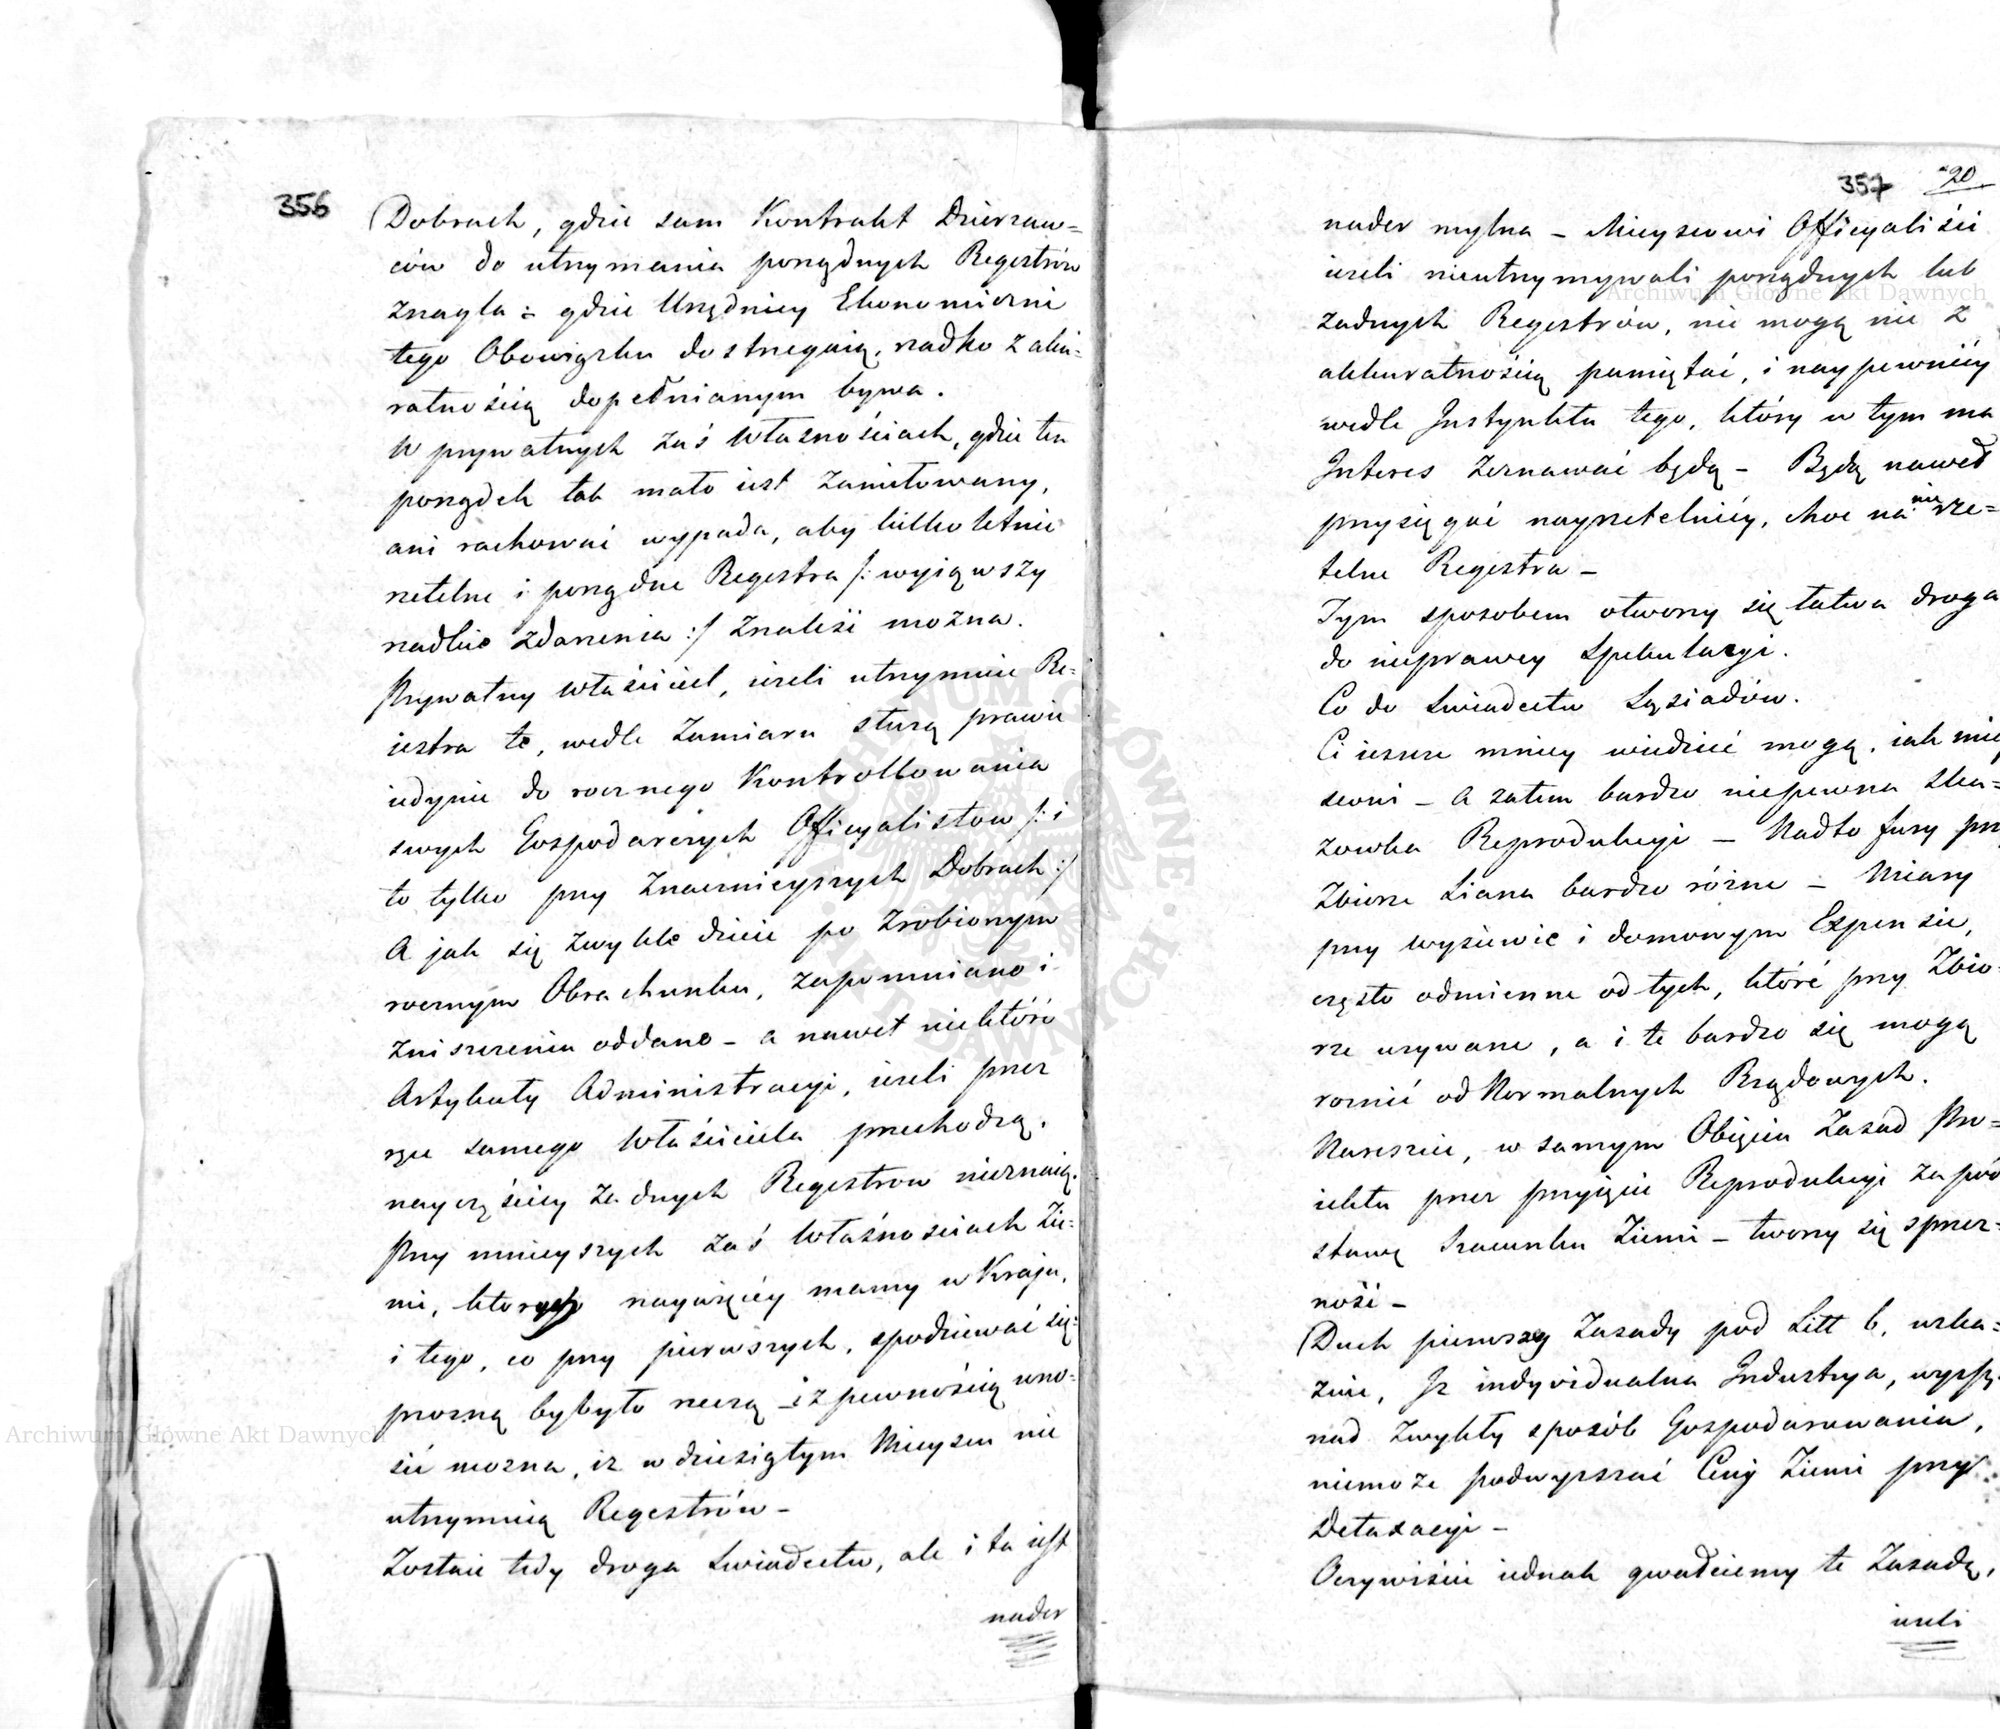 356
Dobrach, gdzie sam Kontrakt Dzierzaw=
ców do utrzymania porządnych Regestrów
znagla : gdzie Urzędnicy Ekonomiczni
tego Obowiązku dostrzegaią, rzadko z aku=
ratnością dopełnianym bywa.
W prywatnych zaś Własnościach, gdzie ten
porządek tak mało iest zamiłowany,
ani rachować wypada, aby kilkoletnie
rzetelne i porządne Regestra /: wyiąwszy
rzadkie zdarzenia :/ znaleśź można.
Prywatny właściciel, ieżeli utrzymuie Re=
iestra te, wedle zamiaru służą prawie
iedynie do rocznego Kontrollowania
swych Gospodarczych Officyalistow /: i
to tylko przy znacznieyszych Dobrach :/
A jak się zwykle dzieie po zrobionym
rocznym Obrachunku, zapomniano i
zniszczeniu oddano – a nawet niektóré
Artykuły Administracyi, ieżeli przez
ręce samego Właściciela przechodzą,
nayczęściey żadnych Regestrow nieznaią.
Przy mnieyszych zaś Własnościach Zie=
mi, ktorych naywięcéy mamy w Kraju,
i tego, co przy pierwszych, spodziewać się
prozną byłyto rzeczą – i z pewnością wno=
sić mozna, iz w dziesiątym Mieyscu nie
utrzymuią Regestrów –
Zostaie tedy droga Swiadectw, ale i ta iest
nader
357
20
nader mylna – Mieyscowi Officyaliści
ieżeli nieutrzymywali porządnych lub
żadnych Regestrów, nie mogą nic z
akkuratnością pamiętać, i naypewniéy
wedle Instynktu tego, który w tym ma
Interes zeznawać będą – Będą nawet
przysięgać nayrzetelniéy, choc na nie rze=
telne Regestra –
Tym sposobem otworzy się łatwa droga
do nieprawey Spekulacyi.
Co do Swiadectw Sąsiadów.
Ci ieszcze mniey wiedzieć mogą, iak miey
scowi – A zatem bardzo niepewna Ska=
zowka Reprodukcyi – Nadto fury przy
Zbiorze Siana bardzo różne – Miary
przy wysiewie i domowym Expensie,
często odmienne od tych, któré przy Zbio=
rze używane, a i te bardzo się mogą
roznić od Normalnych Rządowych.
Nareszcie, w samym Obięciu Zasad Pro=
iektu przez przyięcie Reprodukcyi za pod
stawę Szacunku Ziemi – tworzy się sprzecz=
ność –
Duch pierwszey Zasady pod Litt b, wska=
zuie, Iz indywidualna Industrya, wyższą
nad zwykły sposób Gospodarowania,
niemoże podwyzszać Ceny Ziemi przy
Detaxacyi –
Oczywiście iednak gwałciemy te Zasadę,
ieżeli
Archiwum Główne Akt Dawnych
Archiwum Główne Akt Dawnych
ARCHIWUM GŁÓWNE AKT DAWNYCH